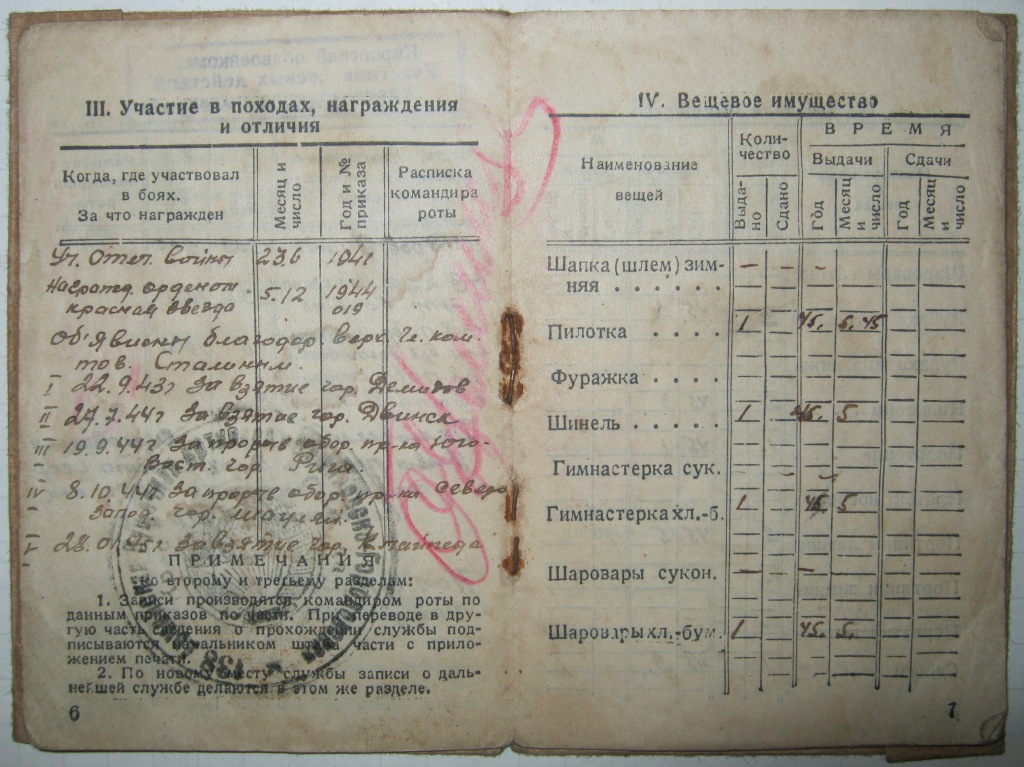 III. Участие в походах, награждения
и отличия
Когда, где участвовал
в боях.
За что награжден
Месяц и
число
Год и №
приказа
Расписка
командира
роты
Уч. Отеч. войны 23.6 1941
Награжд. орденом 5.12 1944
красная звезда 019
Об'явлены благодар. Верх. Гл. ком.
тов. Сталиным.
I 22.9.43г За взятие гор. Демидов
II 27.7.44г За взятие гор. Двинск
III 19.9.44г За прорыв обор. пр-ка Юго-
Вост. гор. Рига.
IV 8.10.44г За прорыв обор. пр-ка северо
Запад. гор. Шауляй.
V 28.01.45г За взятие гор. Клайпеда
ПРИМЕЧАНИЯ
ко второму и третьему разделам:
1. Записи производятся командиром роты по
данным приказов по части. При переводе в дру-
гую часть сведения о прохождении службы под-
писываются начальником штаба части с прило-
жением печати.
2. По новому месту службы записи о даль-
нейшей службе делаются в этом же разделе.
6
IV. Вещевое имущество
Наименование
вещей
Коли-
чество
ВРЕМЯ
Выдачи
Сдачи
Выда-
но
Сдано
Год
Месяц
и
число
Год
Месяц
и число
Шапка (шлем) зим- – – –
няя . . . . . .
Пилотка . . . . 1 45. 5.45
Фуражка . . . .
Шинель . . . . . 1 45. 5
Гимнастерка сук.
Гимнастерка хл.-б. 1 45 5
Шаровары сукон. – –
Шаровары хл.-бум. 1 45. 5.
7